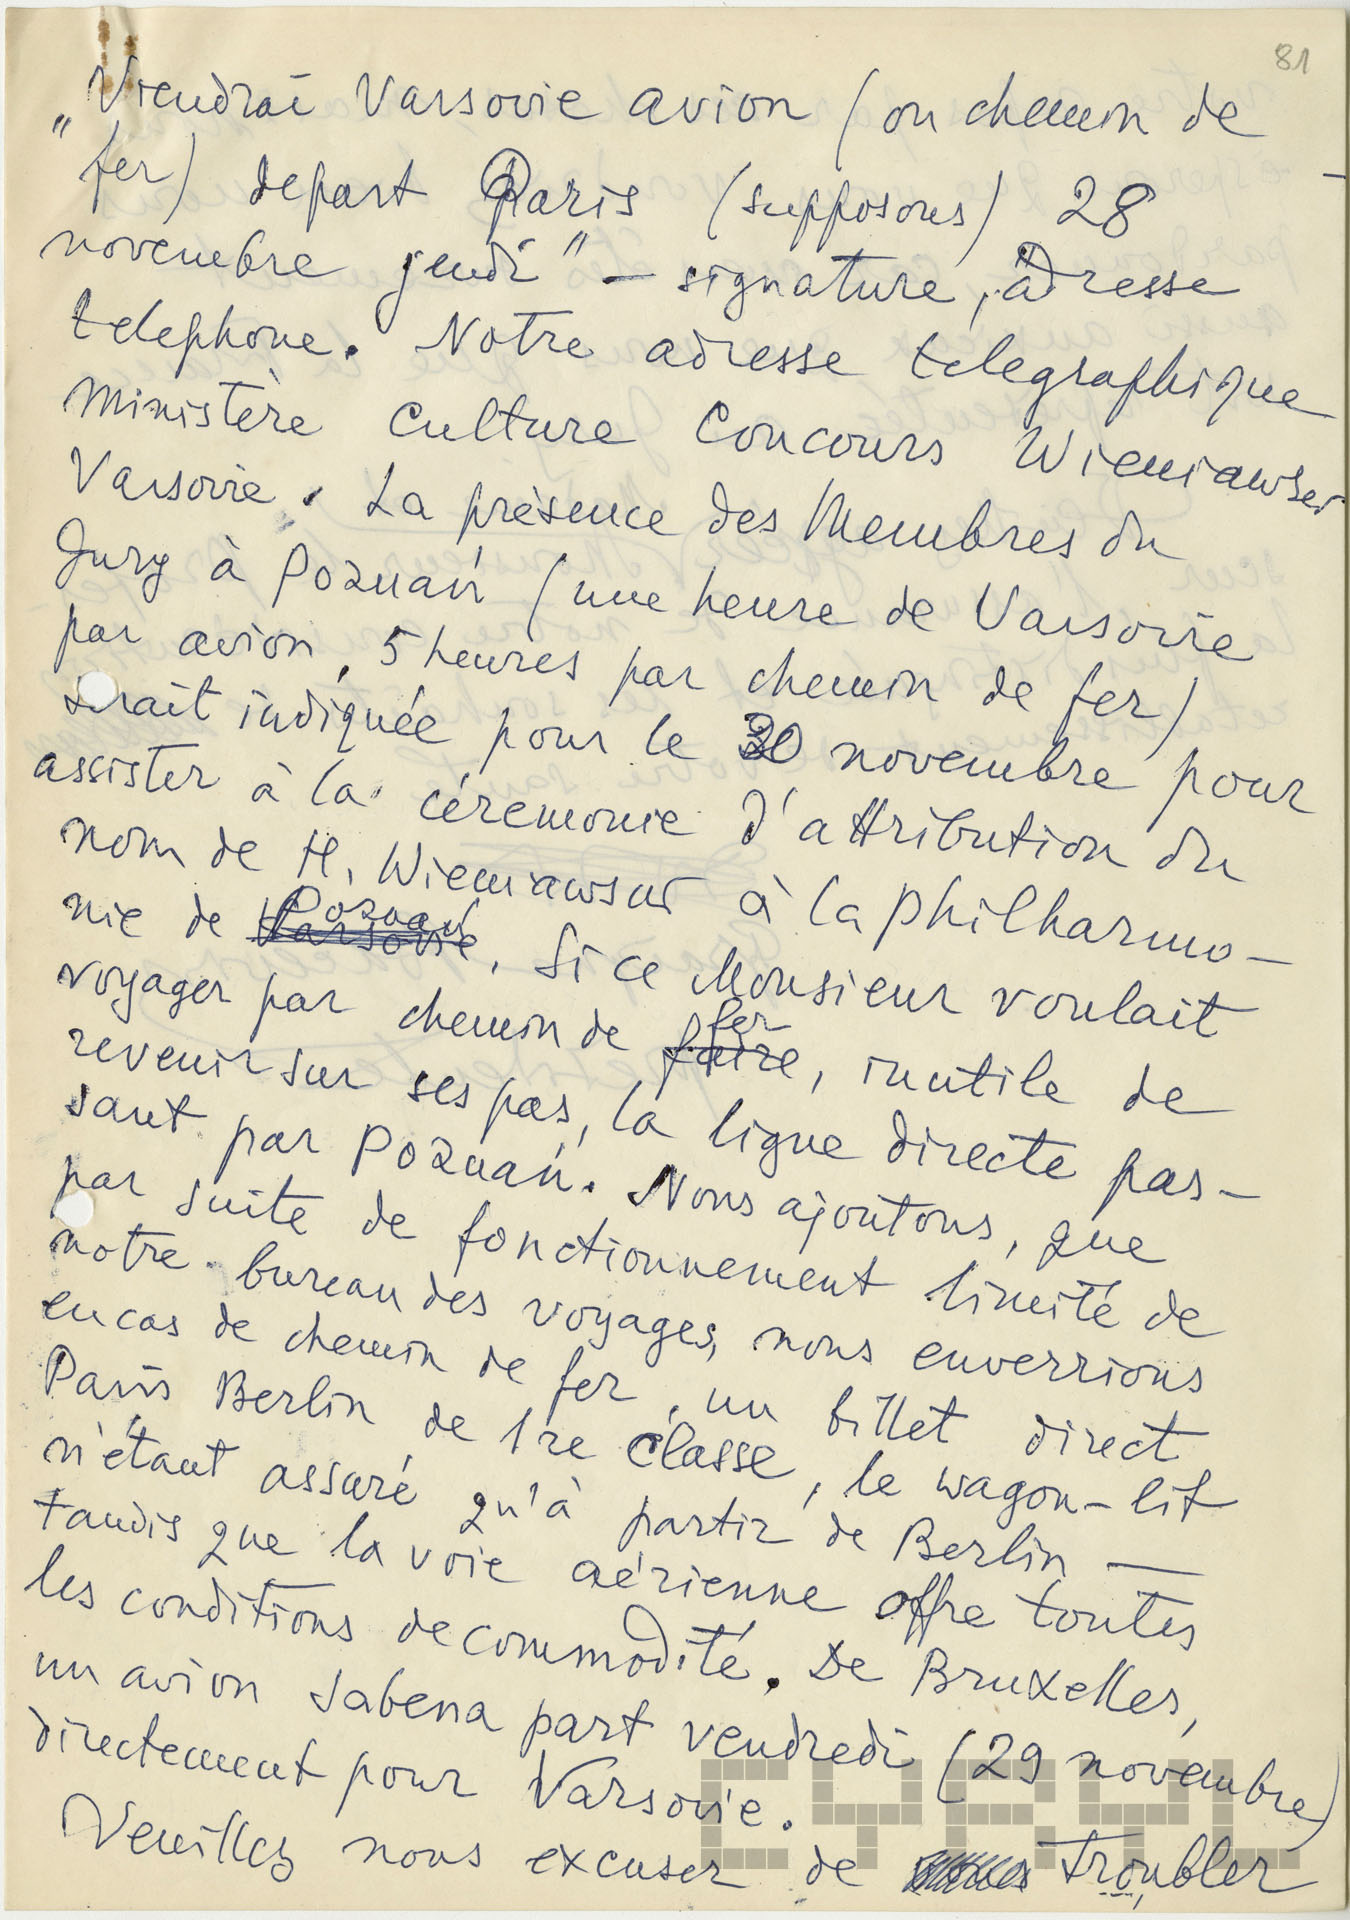 81
„Viendrai Varsovie avion (ou chemin de
fer) depart Paris (supposons) 28
novembre jeudi" – signature, adresse
telephone. Notre adresse telegraphique
Ministère Culture Concours Wieniawski
Varsovie. La présence des Membres du
Jury à Poznań (une heure de Varsovie
par avion, 5 heures par chemin de fer)
serait indiquée pour le 30 novembre pour
assister à la céremonie d'attribution du
nom de H. Wieniawski à la Philharmo-
nie de Varsovie Poznań. Si ce Monsieur voulait
voyager par chemin de faire fer, inutile de
revenir sur ses pas, la ligne directe pas-
sant par Poznań. Nous ajoutons, que
par suite de fonctionnement limité de
notre bureau des voyages, nous enverrions
en cas de chemin de fer, un billet direct
Paris Berlin de 1re classe, le wagon-lit
n'étant assuré qu'à partir de Berlin –
tandis que la voie aérienne offre toutes
les conditions de commodité. De Bruxelles,
un avion Sabena part vendredi (29 novembre)
directement pour Varsovie.
Veuillez nous excuser de troubler
CYRYL